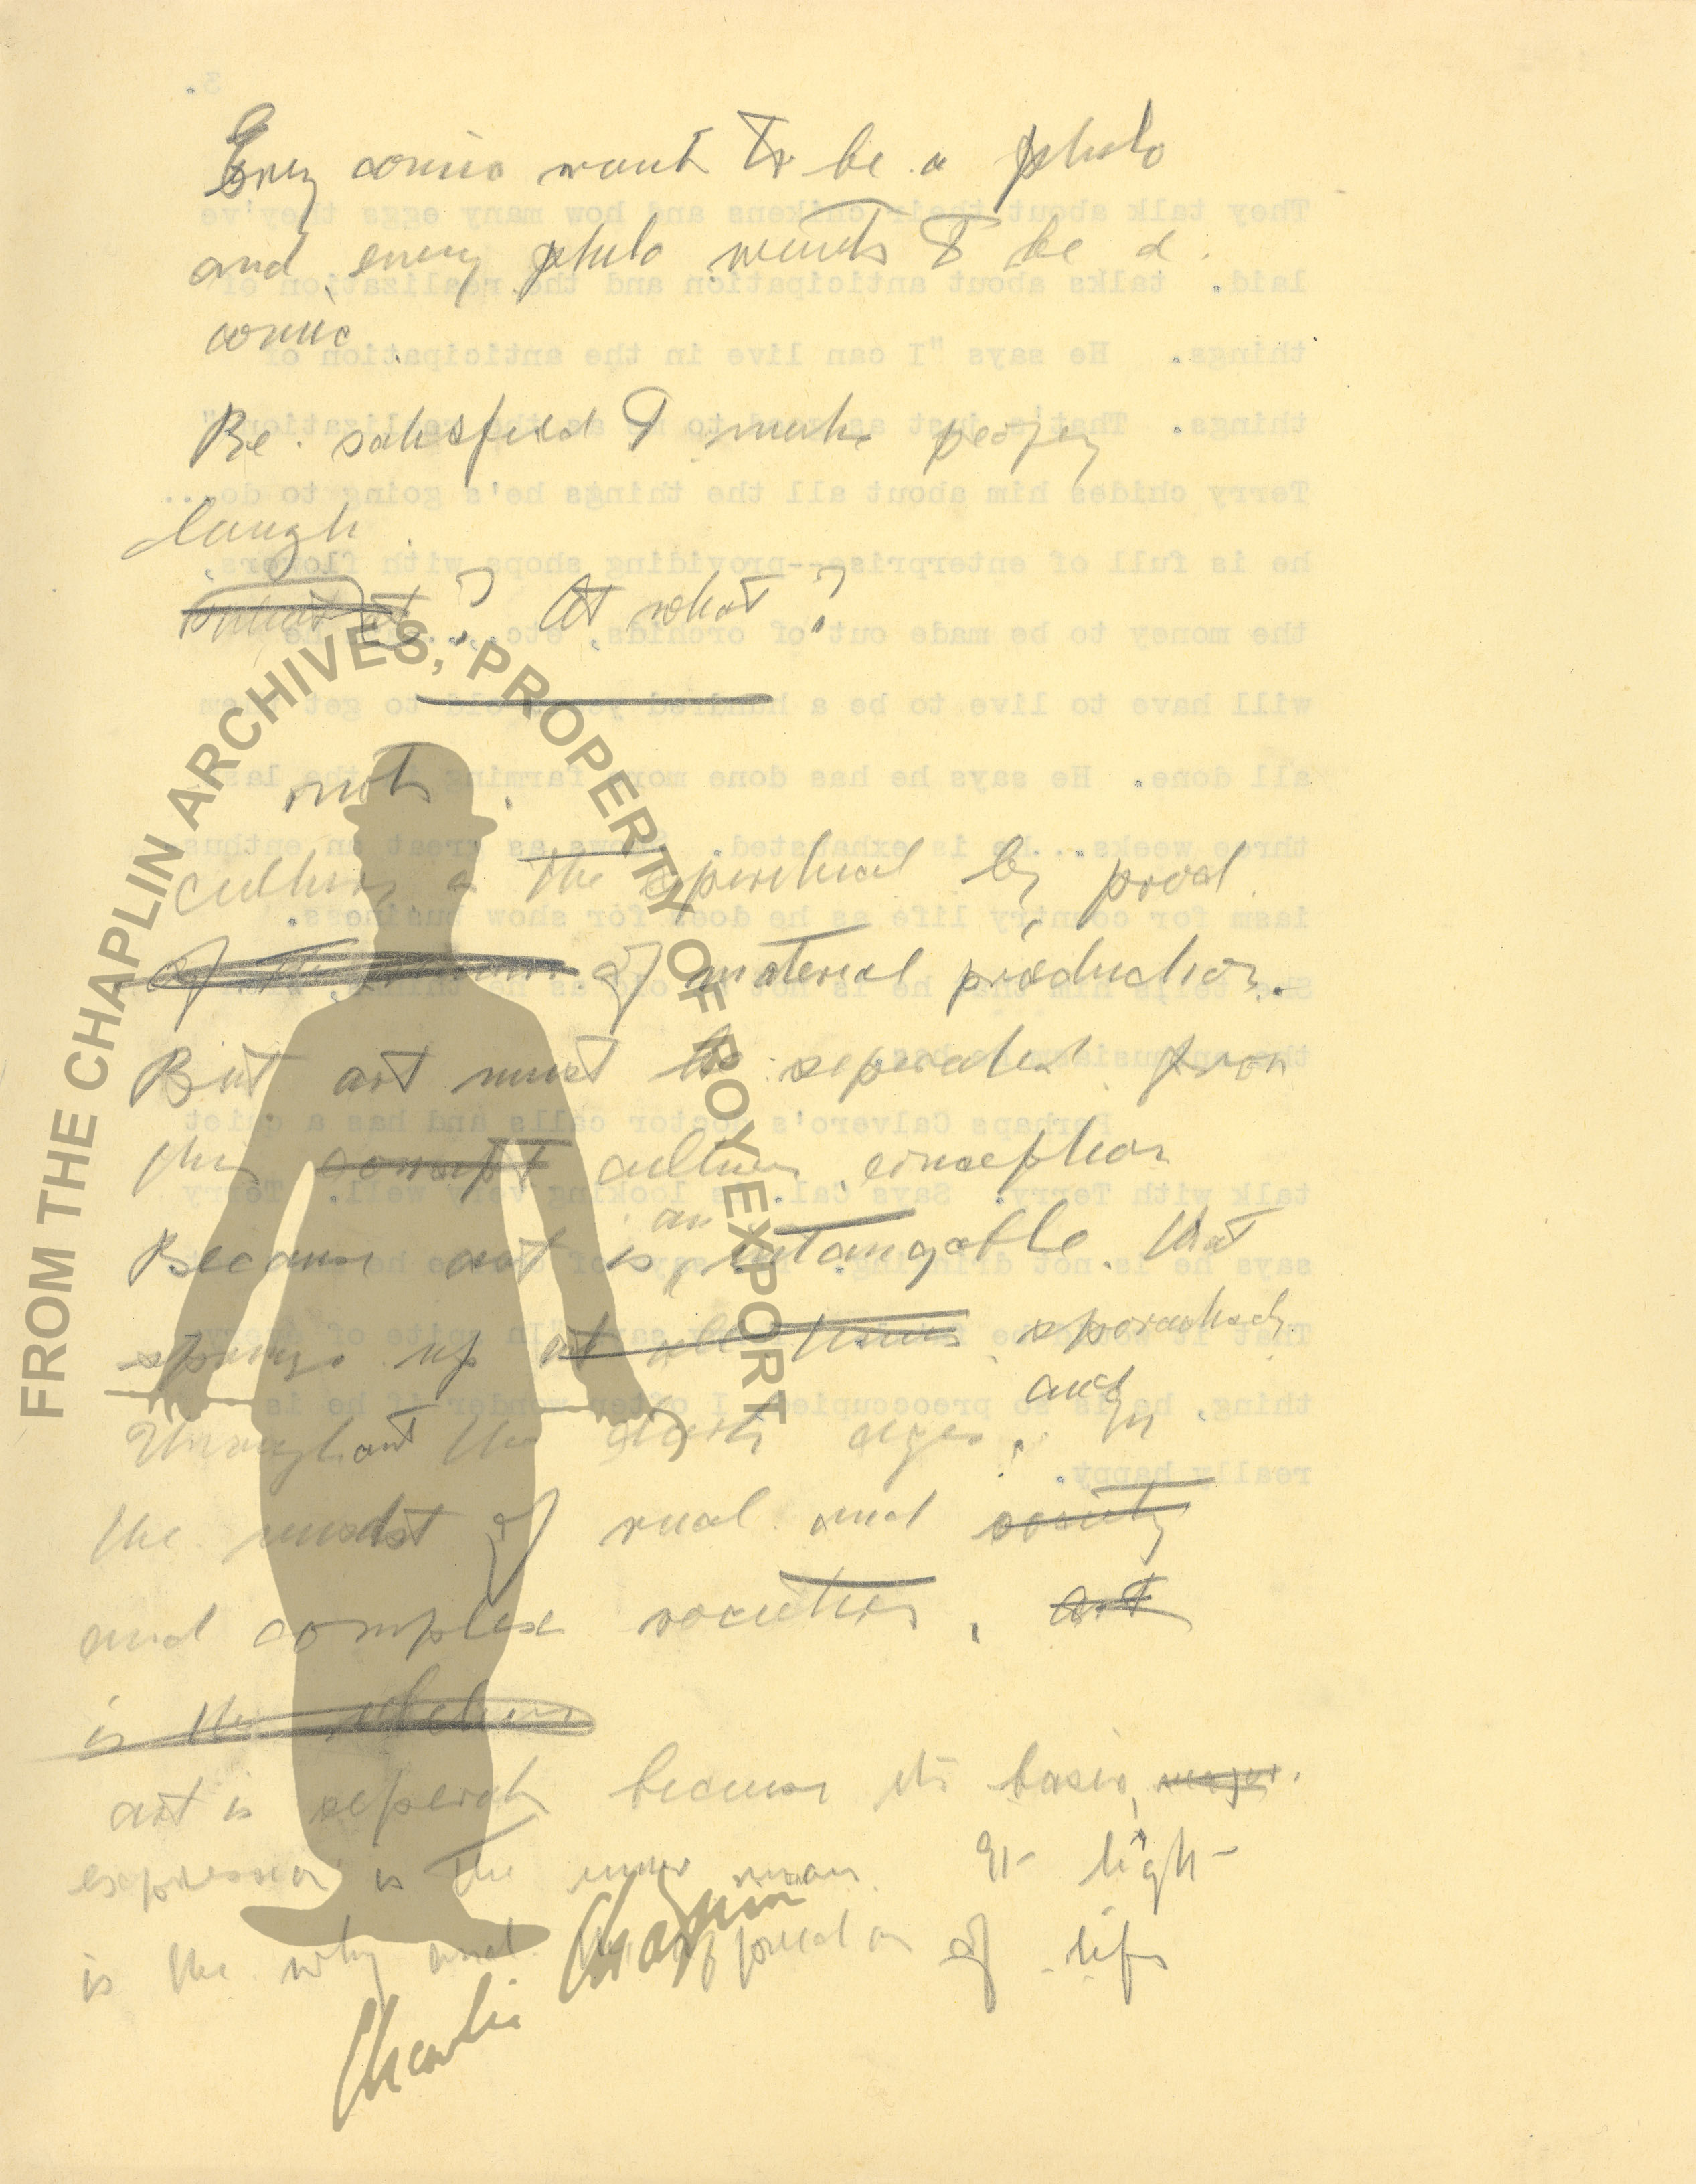 Every comic want to be a philo
and every philo wants to be a
comic
Be satisfied to make people
laugh.
what at? At what?
not
culture is the spiritual by prod
of material production.
But art must be seperated from
this concept culture conception
Because art is an intangable that
springs up at all times sporadically
Throughout the dark ages. and In
the midst of rual and society
and complex societies, art
is the
art is seperate because its basic
expression is the inner man. It ligh
is the why and of life
FROM THE CHAPLIN ARCHIVES, PROPERTY OF ROY EXPORT
Charlie Chaplin
3.
They talk about their chikens and how many eggs they've
laid. talks about anticipation and the realization of
things. He says "I can live in the anticipation of
things. That's just as good to me as the realization"
Terry chides him about all the things he's going to do...
he is full of enterprise--providing shops with flowers,
the money to be made out of orchids, etc. he
will have to live to be a hundred years old to get them
all done. He says he has done more farming in the last
three weeks... he is exhausted. Shows as great an enthus-
iasm for country life as he does for show business.
She tells him that he is not as old as he thinks,
the enthusiasm he has
Perhaps Calvero's doctor calls and has a quiet
talk with Terry. Says Cal. is looking very well. Terry
says he is not drinking. says of he
That it says "In spite of every-
thing, he is so preoccupied I often wonder if he is
really happy.